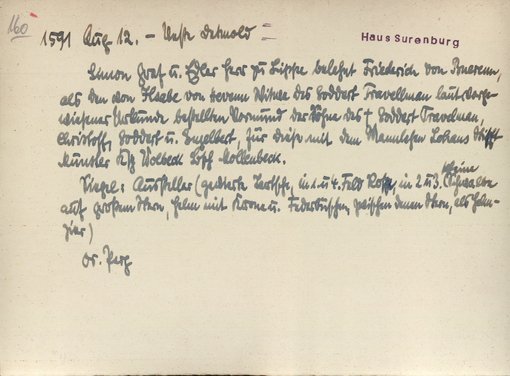 160
1591 Aug 12. – Veste Detmold =
Haus Surenburg
Simon Graf u. Edler Herr zu Lippe belehnt Friederich von
als den von Elsabe von Witwe des Goddert Travelman laut vorge-
wiesener Urkunde bestellten Vormund der Söhne des † Goddert Travelman,
Christoff, Goddert u. Engelbert, für diese mit dem Mannlehen Stift
Münster Ksp Wolbeck Bssch
Siegel: Aussteller (gevierte Tartsche, in 1 u. 4. Feld Rose, in 2 u 3. kleine Schwalbe
auf großem Stern, Helm mit Krone u. Federbüschen, zwischen denen Stern, als Helm-
zier)
Or. Perg